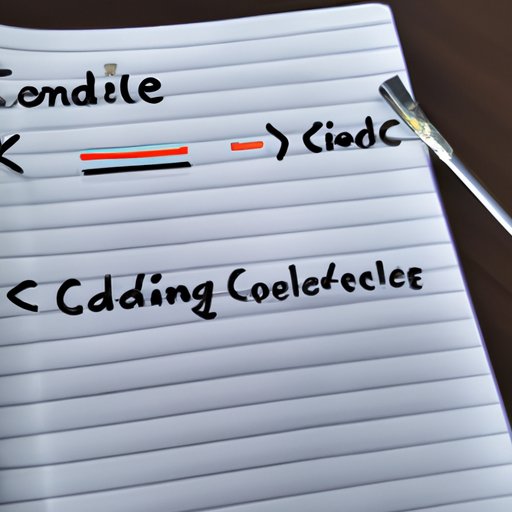 Condile
< = - > Ciodc
< Cddaing Coeletecles